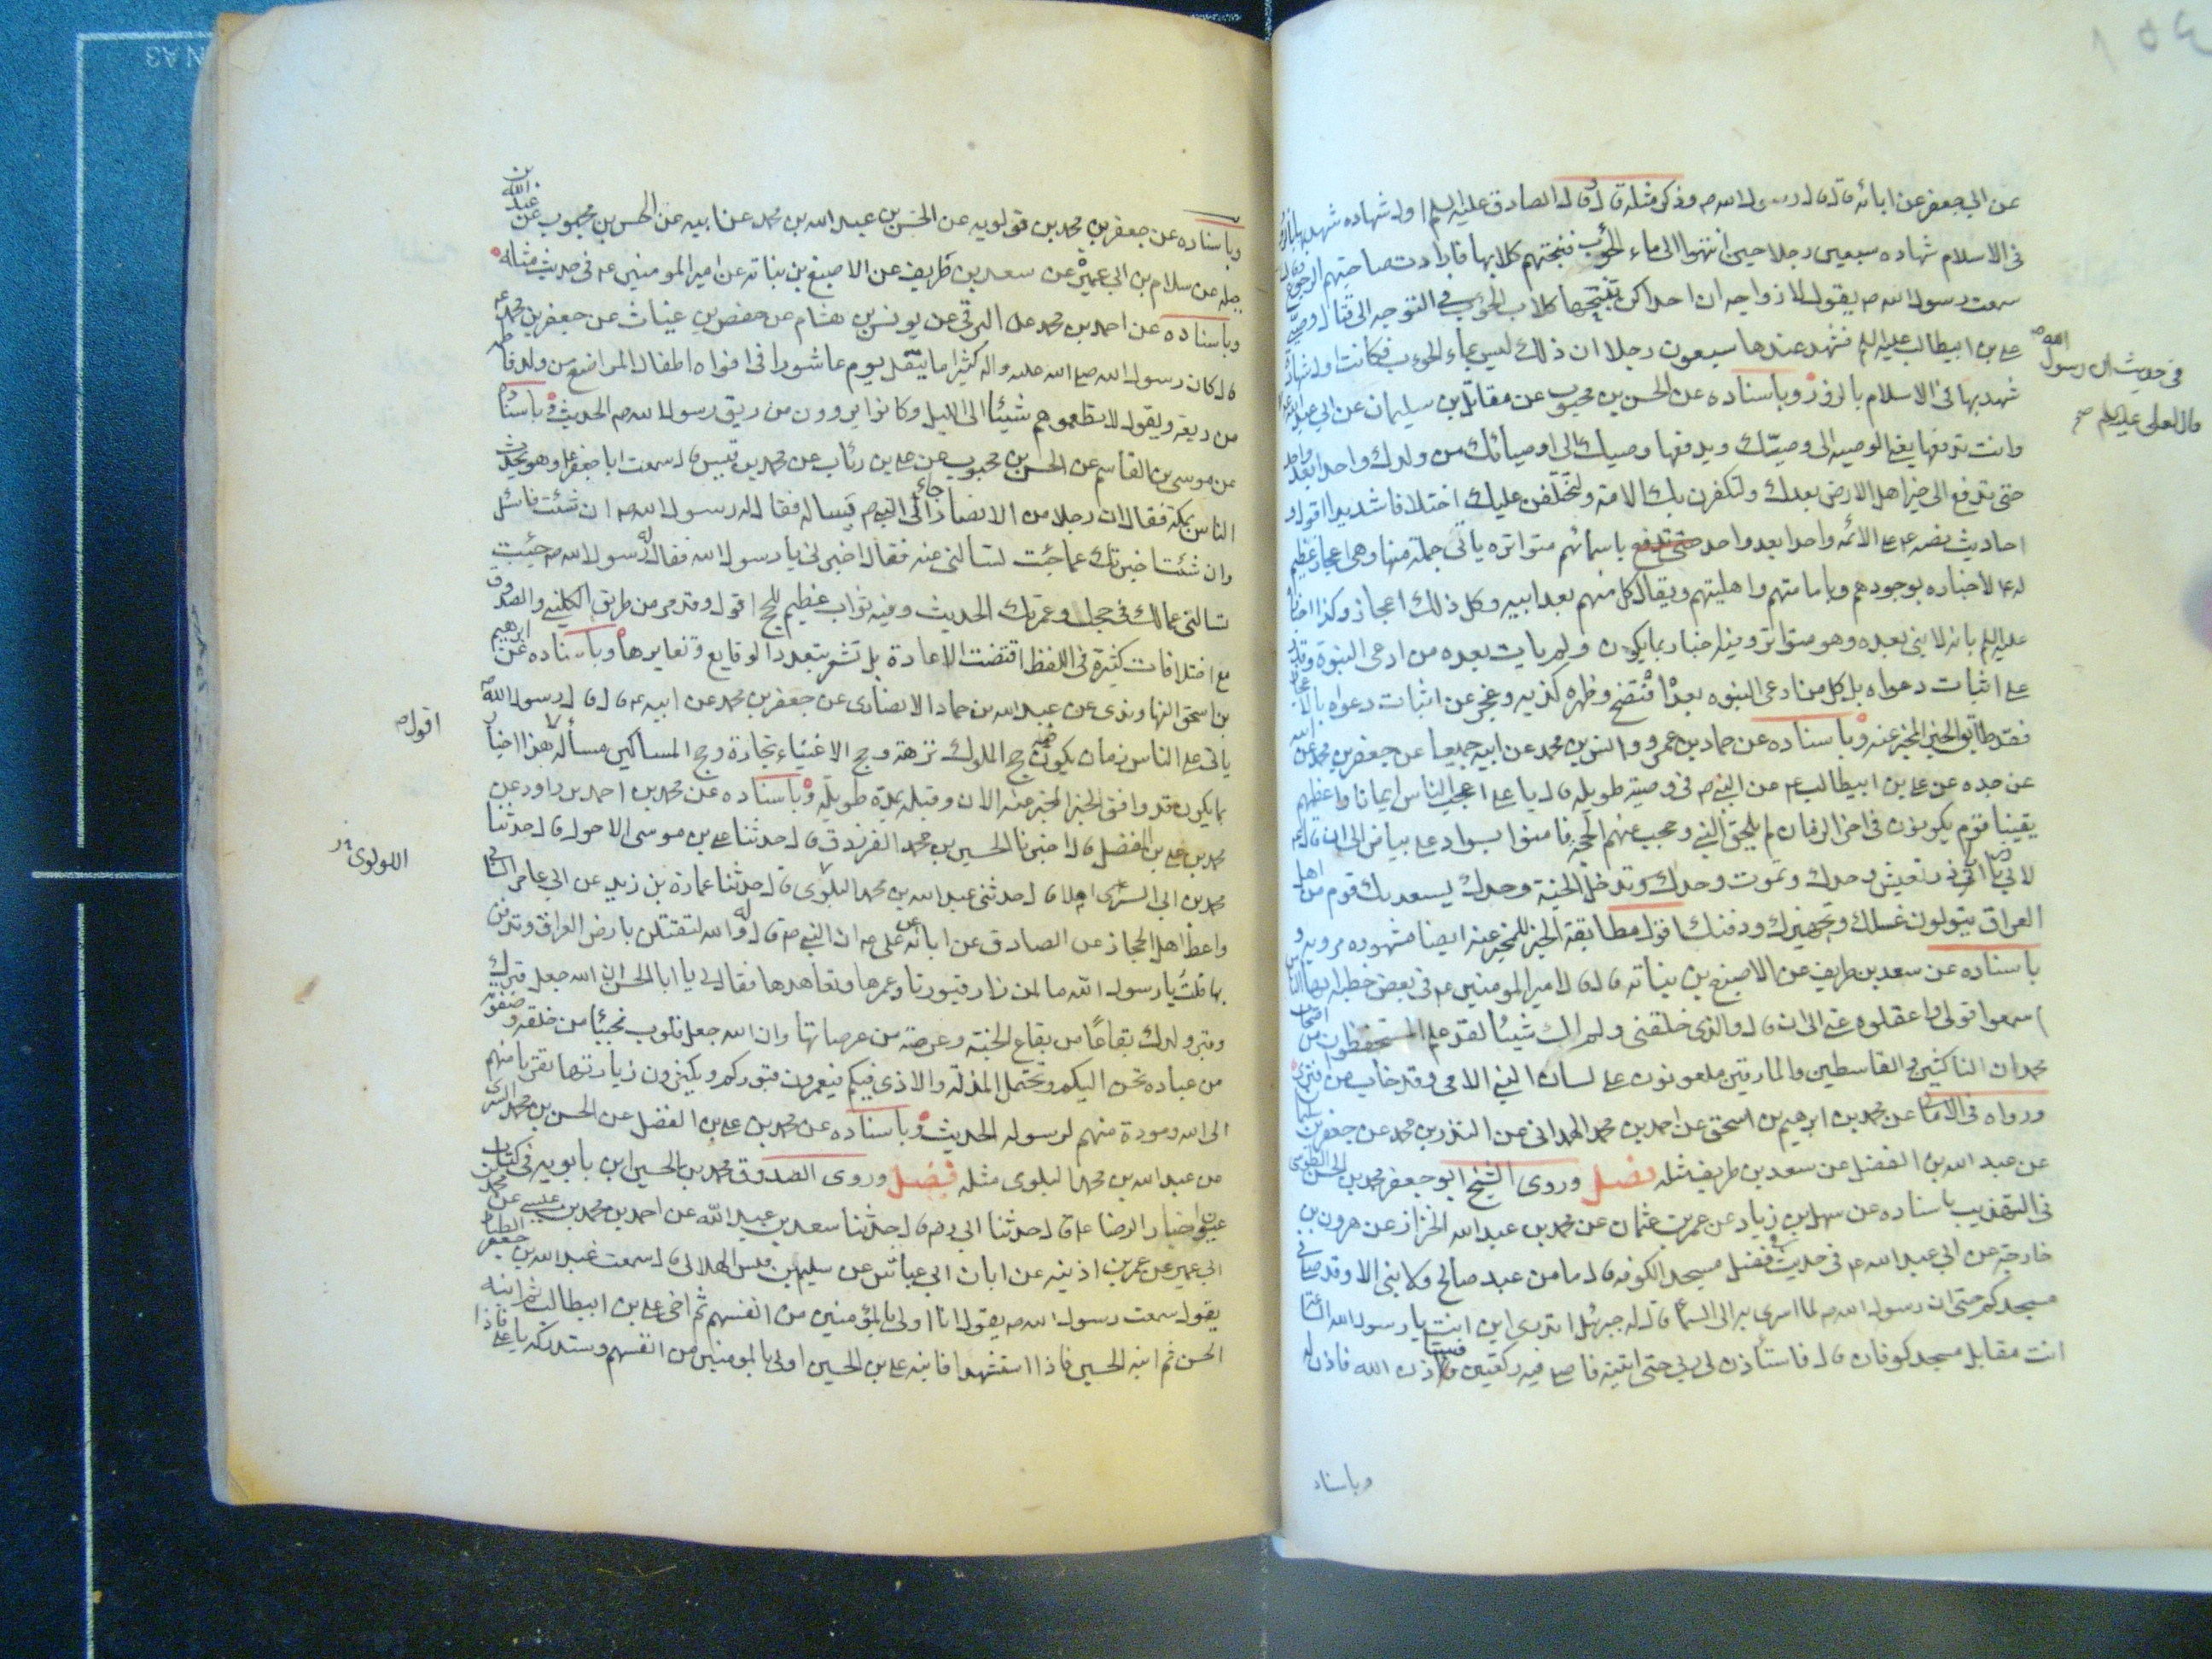 عن ابي جعفر عن ابائه ع قال قال رسول الله ص وذكر مثله قال وقال الصادق عليه السلم اول شهاده شهد بها بالزور
في الاسلام شهاده سبعين رجلا حين انتهوا الى ماء الحوأب فنبحتهم كلابها فارادت صاحبتهم الرجوع وقالت
سمعت رسول الله ص يقول لازواجه ان احداكن تنبحها كلاب الحوأب في التوجه الى قتال وصيي
علي بن ابيطالب عليه السلم فشهد عندها سبعون رجلا ان ذلك ليس بماء الحوءب فكانت اول شهادة
شهد بها في الاسلام بالزور وباسناده عن الحسن بن محبوب عن مقاتل بن سليمان عن ابي عبد الله ع
في حديث ان رسول الله ص
قال لعلي عليه السلم
وانت تدفعها يعني الوصيه الى وصيّك ويدفعها وصيك الى اوصيائك من ولدك واحدا بعد واحد
حتى تدفع الى خير اهل الارض بعدك ولتكفرن بك الامة ولتختلفن عليك اختلافا شديدا اقول و
احاديث نصه ع على الائمه واحدا بعد واحد حتى تدفع باسمائهم متواتره ياتي جملة منها وهي اعجاز عظيم
له ع لاخباره بوجودهم وبامامتهم واهليتهم وبقاء كل منهم بعد ابيه وكل ذلك اعجاز وكذا اخباره
عليه السلم بانه لا نبي بعده وهو متواتر وفيه اخبار بما يكون ولم يات بعده من ادعى النبوة وقدر
على اثبات دعواه بل كل من ادعى النبوه بعده افتضح وظهر كذبه وعجز عن اثبات دعواه بالاعجاز
فقد طابق الخبر المخبر عنه وباسناده عن حماد بن عمرو وانس بن محمد عن ابيه جميعا عن جعفر بن محمد عن ابيه
عن جده عن علي بن ابيطالب ع عن النبي ص في وصيته طويله قال يا علي اعجب الناس ايمانا واعظمهم
يقينا قوم يكونون في اخر الزمان لم يلحقوا النبي وحجب عنهم الحجة فامنوا بسواد على بياض الى ان قال ع
لابي ذر يا ابا ذر تعيش وحدك وتموت وحدك وتدخل الجنة وحدك يسعد بك قوم من اهل
العراق يتولون غسلك وتجهيزك ودفنك اقول مطابقة الخبر للمخبر عنه ايضا مشهوده مرويه و
باسناده عن سعد بن طريف عن الاصبغ بن نباته قال قال امير المومنين ع في بعض خطبه ايها الناس
اسمعوا قولي واعقلوه عني الى ان قال والذي خلقني ولم اك شيئا لقد علم المستحفظون من اصحاب
محمد ان الناكثين والقاسطين والمارقين ملعونون على لسان النبي الامي وقد خاب من افترى
ورواه في الامالي عن محمد بن ابرهيم بن اسحق عن احمد بن محمد الهمداني عن المنذر بن محمد عن جعفر بن سليمان
عن عبد الله بن الفضل عن سعد بن طريف مثله فصل وروى الشيخ ابو جعفر محمد بن الحسن الطوسي
في التهذيب باسناده عن سهل بن زياد عن عمر بن عثمان عن محمد بن عبد الله الخزاز عن هرون بن
خارجة عن ابي عبد الله ع في حديث فضل مسجد الكوفه قال ما من عبد صالح ولا نبي الا وقد صلى في
مسجدكم حتى ان رسول الله ص لما اسرى به الى السماء قال له جبرئيل اتدري اين انت يا رسول الله الساعة
انت مقابل مسجد كوفان قال فاستأذن لي ربي حتى اتيته فاصلي فيه ركعتين فاستاذن الله فاذن له
وباسناد
وباسناده عن جعفر بن محمد بن قولويه عن الحسن بن عبد الله بن محمد عن ابيه عن الحسن بن محبوب عن عبد الله بن
جبله عن سلام بن ابي عميره عن سعد بن طريف عن الاصبغ بن نباته عن امير المومنين ع في حديث مثله
وباسناده عن احمد بن محمد عن البرقي عن يونس بن هشام عن حفص بن غياث عن جعفر بن محمد ع
قال كان رسول الله صلى الله عليه واله كثيرا ما يتفل يوم عاشورا في افواه اطفال المراضع من ولد فاطمه
من ريقه ويقول لا تطعموهم شيئا الى الليل وكانوا يروون من ريق رسول الله ص الحديث وباسناده
عن موسى بن القاسم عن الحسن بن محبوب عن علي بن رئاب عن محمد بن قيس قال سمعت ابا جعفر ع وهو يحدث
الناس بمكة فقال ان رجلا من الانصار جاء الى النبي ص يساله فقال له رسول الله ص ان شئت فاسئل
وان شئت اخبرتك عما جئت تسالني عنه فقال اخبرني يا رسول الله فقال له رسول الله ص جئت
تسالني عمالك في حجك وعمرتك الحديث وفيه ثواب عظيم للحج اقول وقد مر من طريق الكليني والصدوق
مع اختلافات كثيرة في اللفظ اقتضت الاعادة بل تشعر بتعدد الوقايع وتغايرها وباسناده عن ابرهيم
بن اسحق النهاوندي عن عبد الله بن حماد الانصاري عن جعفر بن محمد عن ابيه ع قال قال رسول الله ص
ياتي على الناس زمان يكون فيه حج الملوك نزهة وحج الاغنياء تجارة وحج المساكين مسألة هذا اخبار
اقول
بما يكون قد وافق الخبر المخبر عنه الان وقبله بمدة طويله وباسناده عن محمد بن احمد بن داود عن
محمد بن علي بن الفضل قال اخبرنا الحسين بن محمد الفرزدق قال حدثنا علي بن موسى الاحول قال حدثنا
محمد بن ابي السرى املاء قال حدثني عبد الله بن محمد البلوي قال حدثنا عمارة بن زيد عن ابي عامر الساجي
اللولوي
واعظ اهل الحجاز عن الصادق عن ابائه عن علي ع ان النبي ص قال له والله لتقتلن بارض العراق وتدفن
بها قلت يا رسول الله ما لمن زار قبورنا وعمرها وتعاهدها فقال لي يا ابا الحسن ان الله جعل قبرك
وقبر ولدك بقاعًا من بقاع الجنة وعرصة من عرصاتها وان الله جعل قلوب نجباء من خلقه وصفوة
من عباده تحن اليكم وتحتمل المذلة والاذى فيكم فيعمرون قبوركم ويكثرون زيارتها تقربا منهم
الى الله ومودة منهم لرسوله الحديث وباسناده عن محمد بن علي بن الفضل عن الحسن بن محمد السرى
عن عبد الله بن محمد البلوى مثله فصل وروى الصدوق محمد بن علي بن الحسين ابن بابويه في كتاب
عيون اخبار الرضا ع قال حدثنا ابي رض قال حدثنا سعد بن عبد الله عن احمد بن محمد بن عيسى عن محمد بن
ابي عمير عن عمر بن اذينه عن ابان ابي عياش عن سليم بن قيس الهلالى قال سمعت عبد الله بن جعفر الطيار
يقول سمعت رسول الله ص يقول انا اولى بالمؤمنين من انفسهم ثم اخي علي بن ابيطالب ثم ابنه
الحسن ثم ابنه الحسين فاذا استشهد فابنه علي بن الحسين اولى بالمومنين من انفسهم وستدركه يا علي فاذا